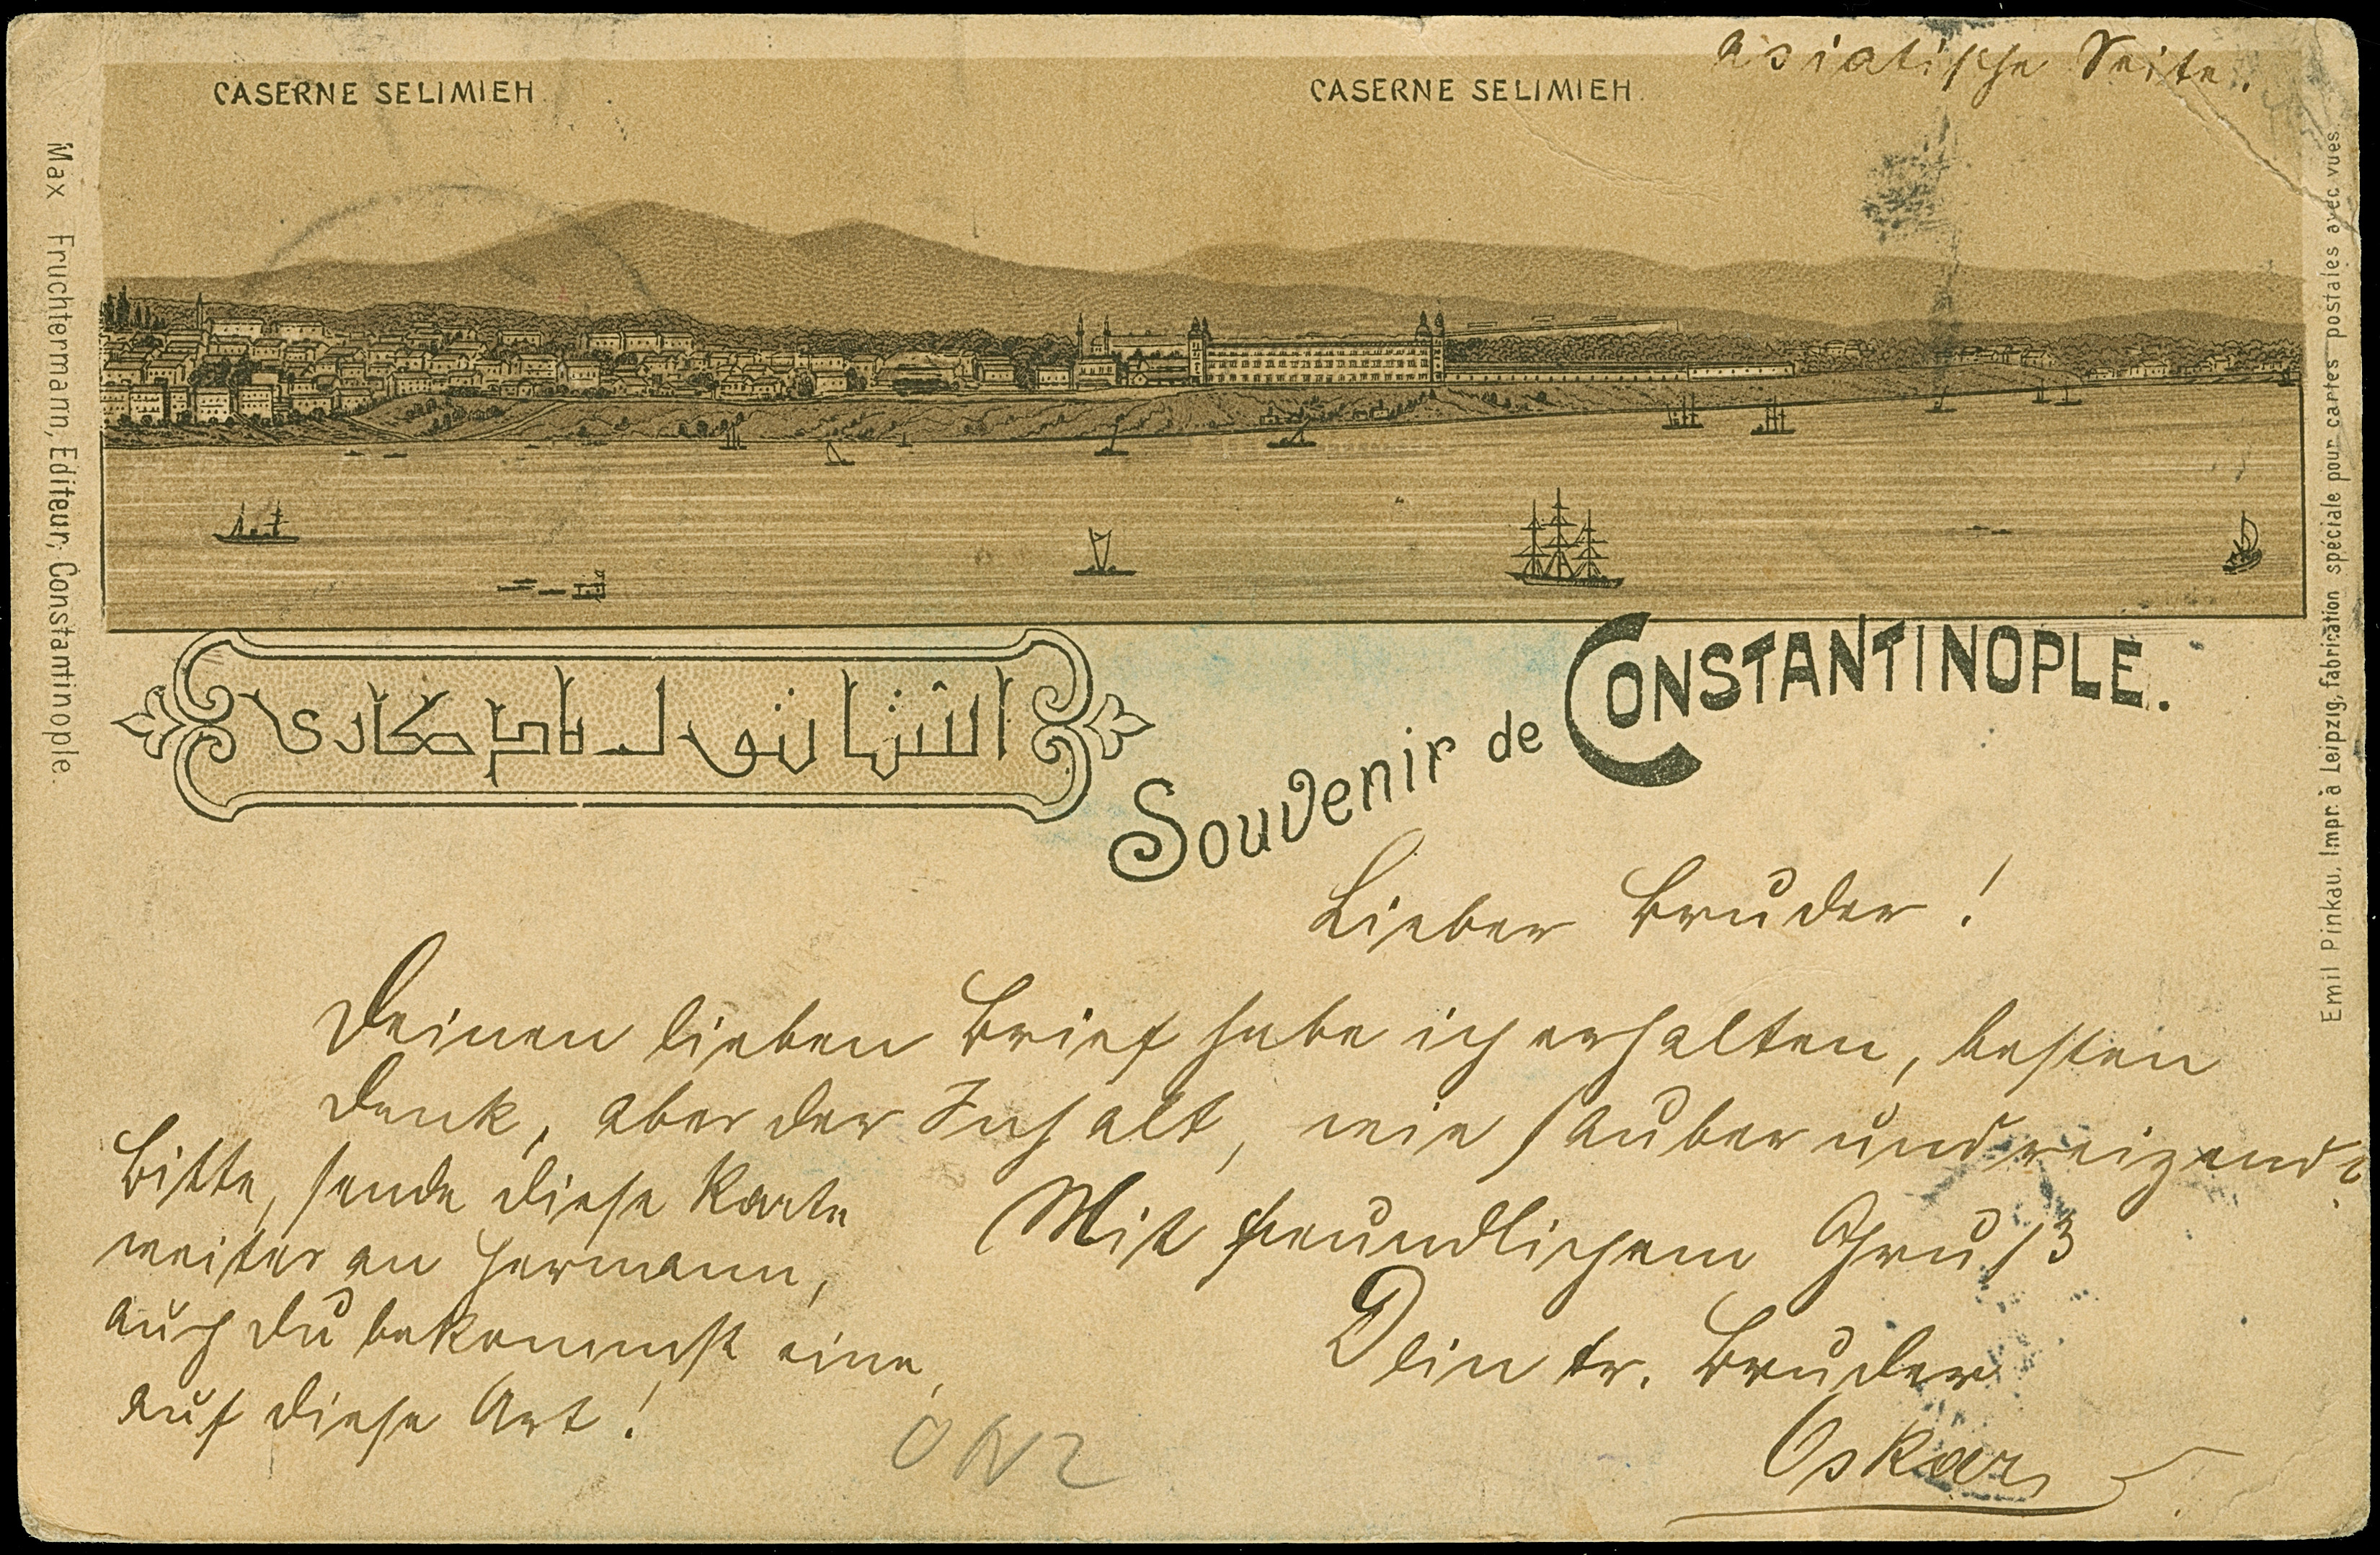 asiatische Seite.
CASERNE SELIMIEH
CASERNE SELIMIEH.
Max Fruchtermann, Editeur, Constantinople.
Emil Pinkau, Impr. à Leipzig, fabrication spéciale pour cartes postales avec vues.
استانبول يادكارى
Souvenir de CONSTANTINOPLE.
Lieber Bruder!
Deinen lieben Brief habe ich erhalten, besten
Dank, aber der Inhalt, wie sauber und reizend?
Mit freundlichem Gruß
Dein tr. Bruder
Oskar
Bitte, sende diese Karte
weiter an Hermann,
auch Du bekommst eine,
auf diese Art!